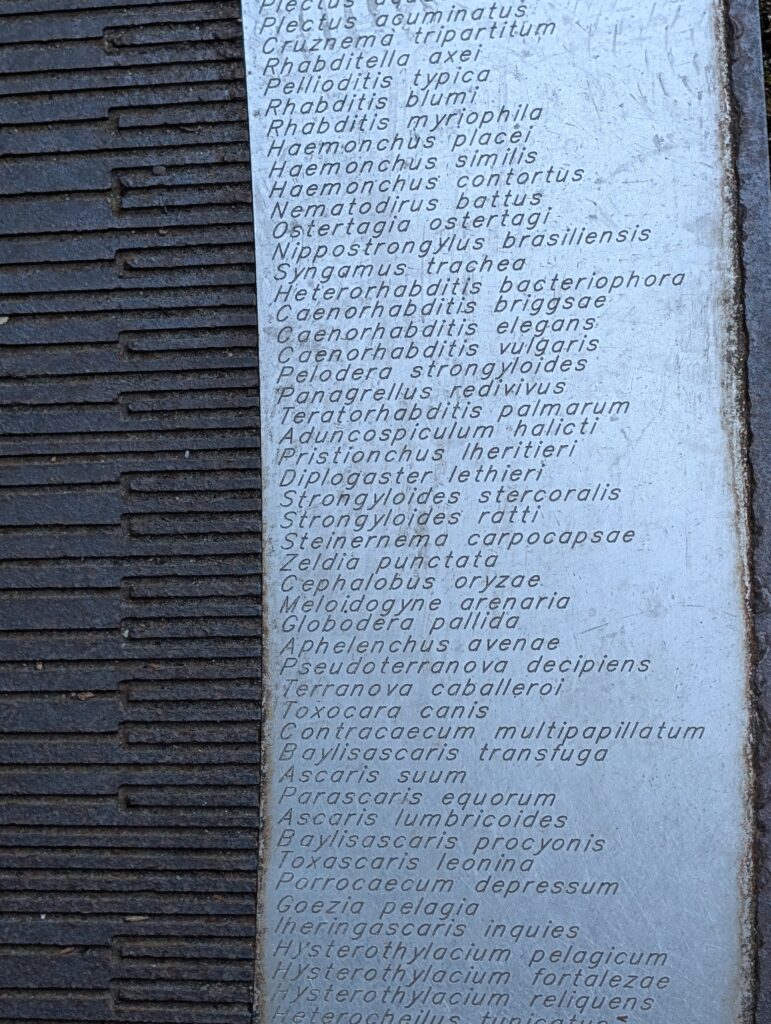 Plectus
Plectus acuminatus
Cruznema tripartitum
Rhabditella axei
Pellioditis typica
Rhabditis blumi
Rhabditis myriophila
Haemonchus placei
Haemonchus similis
Haemonchus contortus
Nematodirus battus
Ostertagia ostertagi
Nippostrongylus brasiliensis
Syngamus trachea
Heterorhabditis bacteriophora
Caenorhabditis briggsae
Caenorhabditis elegans
Caenorhabditis vulgaris
Pelodera strongyloides
Panagrellus redivivus
Teratorhabditis palmarum
Aduncospiculum halicti
Pristionchus lheritieri
Diplogaster lethieri
Strongyloides stercoralis
Strongyloides ratti
Steinernema carpocapsae
Zeldia punctata
Cephalobus oryzae
Meloidogyne arenaria
Globodera pallida
Aphelenchus avenae
Pseudoterranova decipiens
Terranova caballeroi
Toxocara canis
Contracaecum multipapillatum
Baylisascaris transfuga
Ascaris suum
Parascaris equorum
Ascaris lumbricoides
Baylisascaris procyonis
Toxascaris leonina
Porrocaecum depressum
Goezia pelagia
Iheringascaris inquies
Hysterothylacium pelagicum
Hysterothylacium fortalezae
Hysterothylacium reliquens
Heterocheilus tunicatus